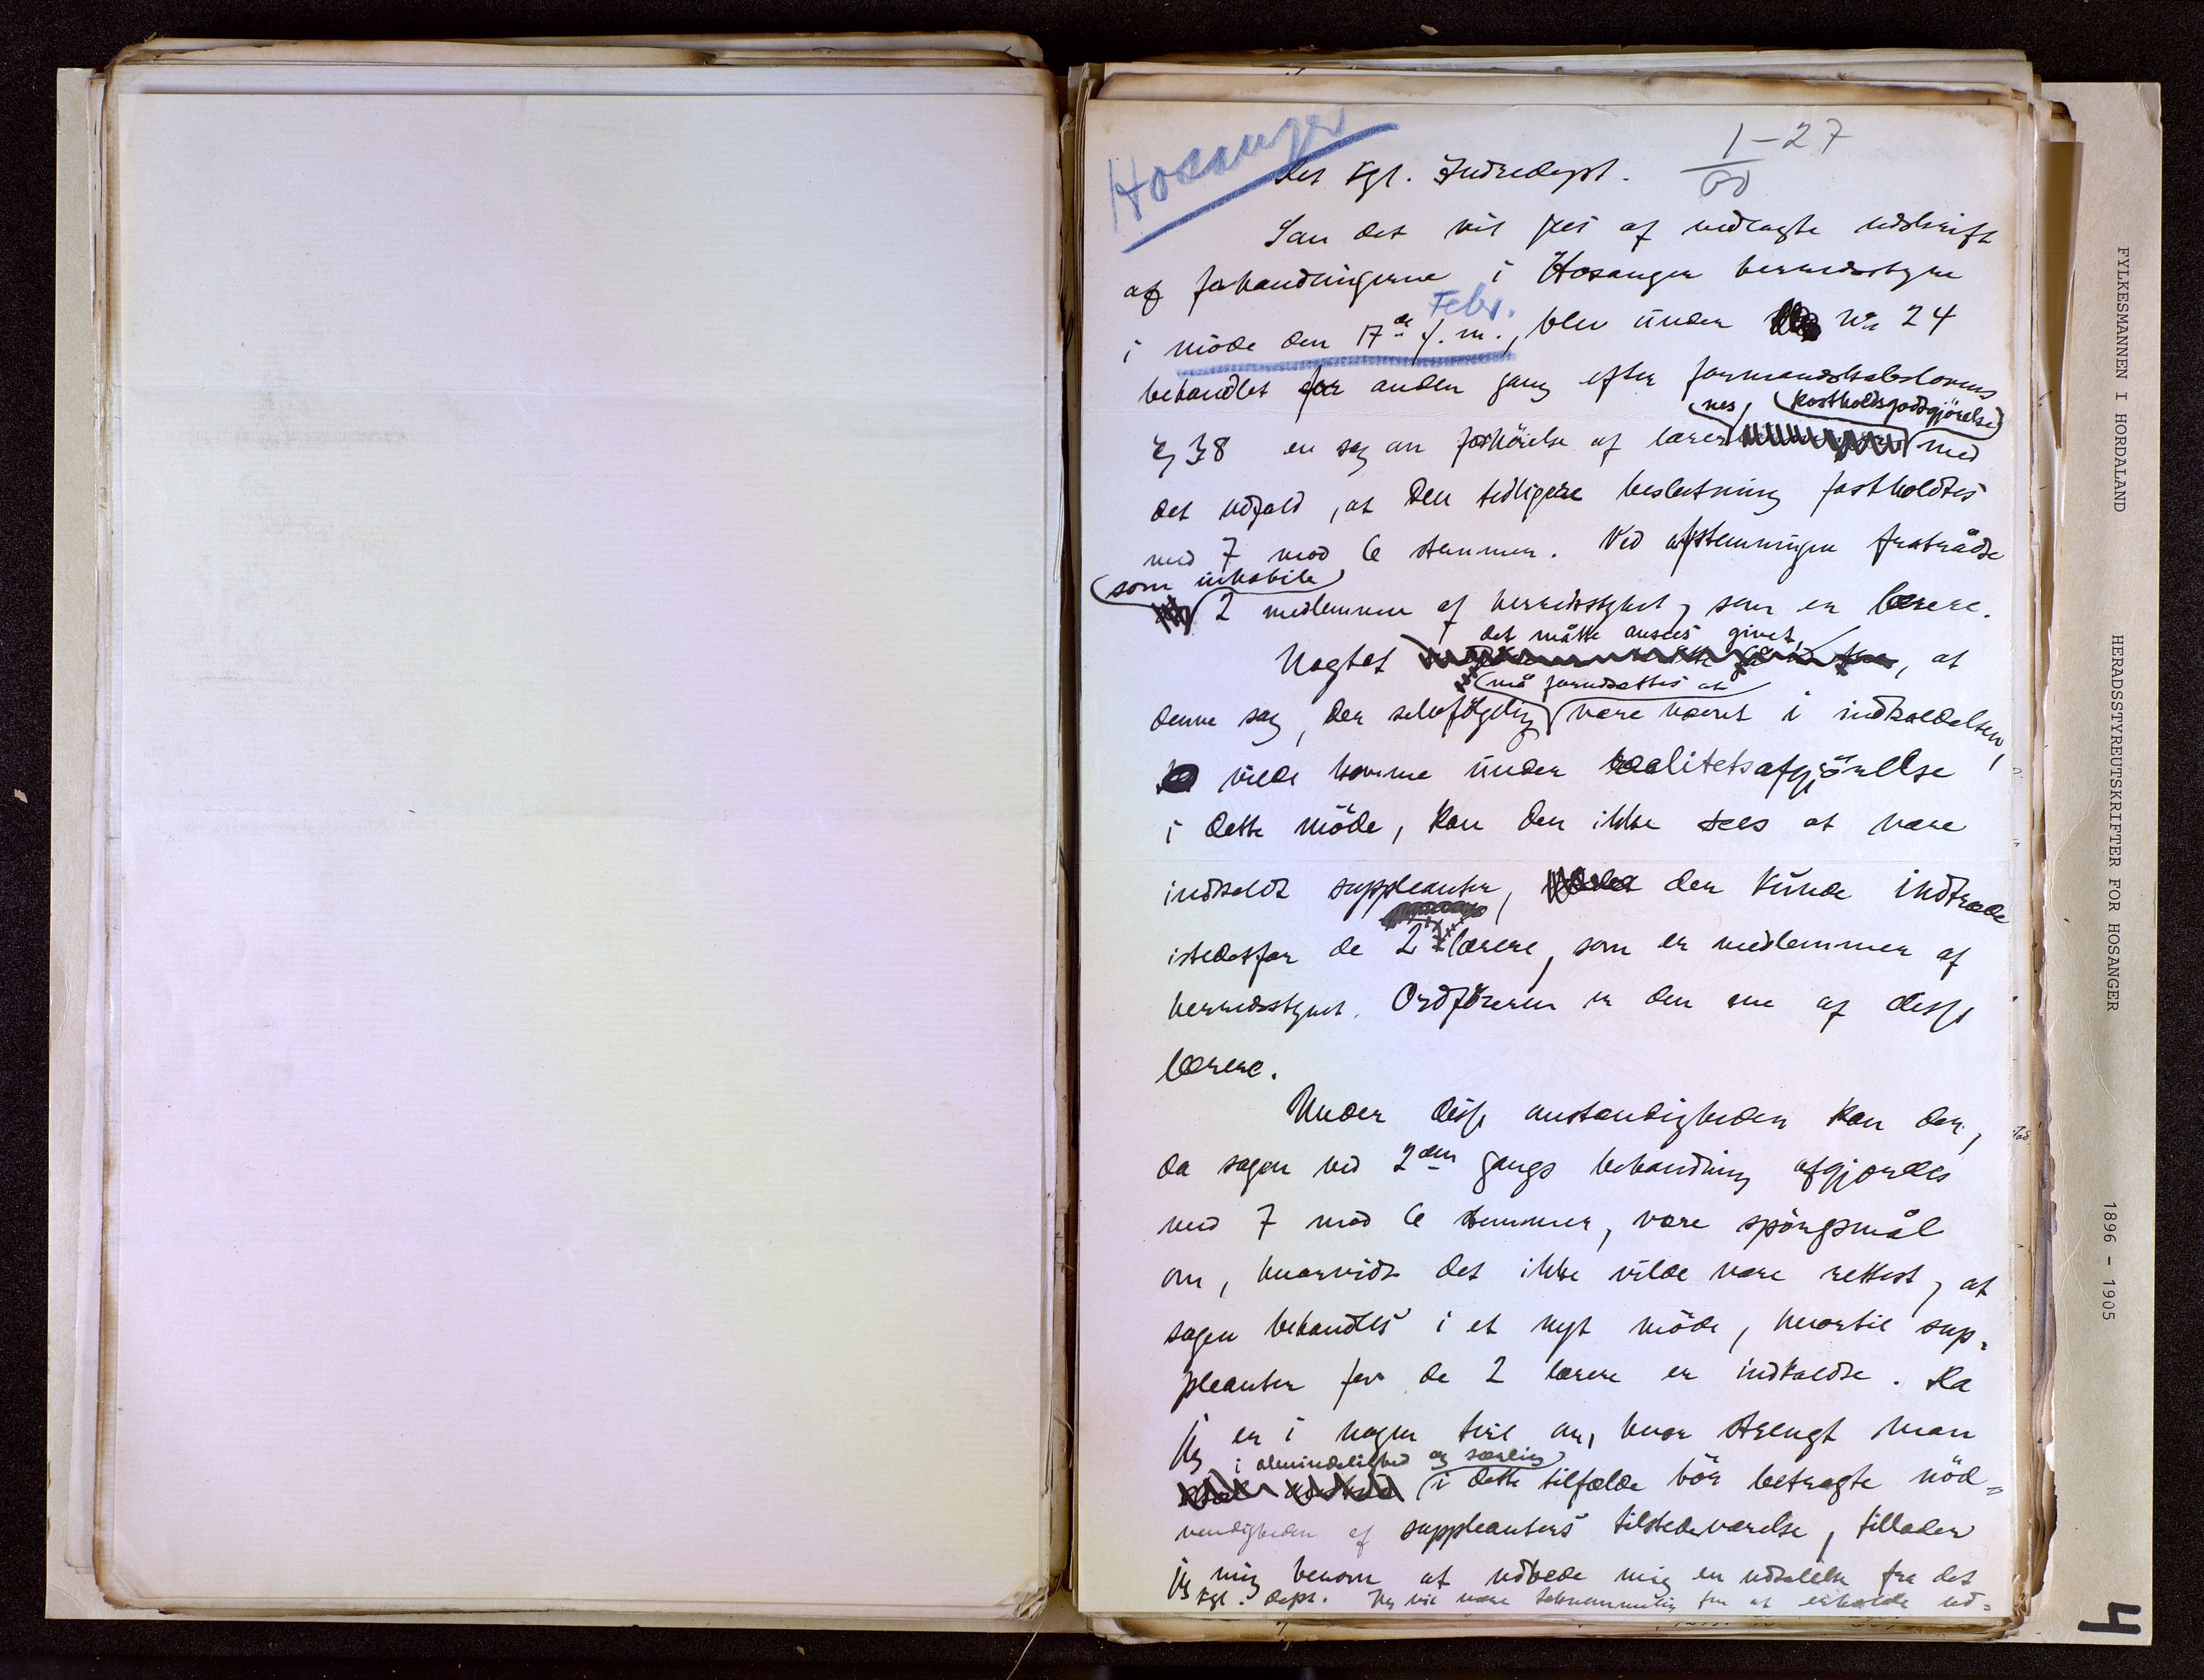 Hosanger
1-27
00
Det kgl. Indredept.
Som det vil sees af vedlagte udskrift
af forhandlingerne i Hosanger herredsstyre
Febr.
i möde den 17de f. m., blev under No 24
behandlet for anden gang efter formandskabslovens
nes, kostholdsgodtgjörelse
§ 38 en sag om forhöielse af lærer med
det udfald, at den tidligere beslutning fastholdtes
med 7 mod 6 stemmer. Ved afstemningen fratrådte
som inhabile
2 medlemmer af herredsstyret, som er lærere.
det måtte ansees givet,
Uagtet , at
må forudsættes at
denne sag, der selvfölgelig være nævnt i indkaldelsen,
vilde komme under realitetsafgjörelse
i dette möde, kan der ikke sees at være
indkaldt suppleanter, der kunde indtræde
istedetfor de 2 lærere, som er medlemmer af
herredsstyret. Ordföreren er den ene af disse
lærere.
Under disse omstændigheder kan der,
da sagen ved 2den gangs behandling afgjordes
med 7 mod 6 stemmer, være spörgsmål
om, hvorvidt det ikke vilde være rettest, at
sagen behandles i et nyt möde, hvortil sup-
pleanter for de 2 lærere er indkaldte. Da
jeg er i nogen tvil om, hvor strengt man
i almindelighed og særlig
i dette tilfælde bör betragte nöd-
vendigheden af suppleanters tilstedeværelse, tillader
jeg mig herom at udbede mig en udtalelse fra det
kgl. dept. Jeg vil være taknemmelig for at erholde ud-
FYLKESMANNEN I HORDALAND
HERADSSTYREUTSKRIFTER FOR HOSANGER
1896 - 1905
4